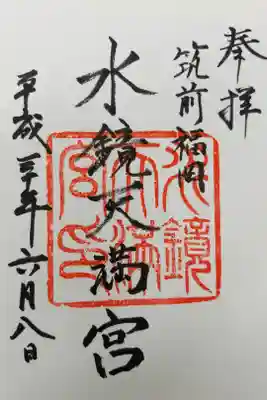 奉拝
筑前福岡
水鏡天満宮
水鏡天満宮印
平成三十年六月八日